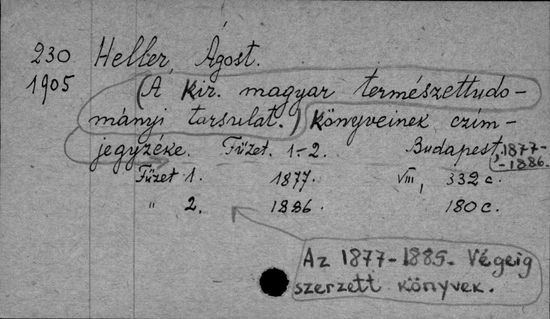 230 Heller Ágost.
1905 (A kir. magyar természettudo-
mányi tarsulat.) könyveinek czím-
jegyzéke. Füzet. 1.-2. Budapest, 1877-
-1886.
Füzet 1. 1877. VIII, 332 c.
" 2. 1886. 180 c.
Az 1877-1885. Végeig
szerzett könyvek.